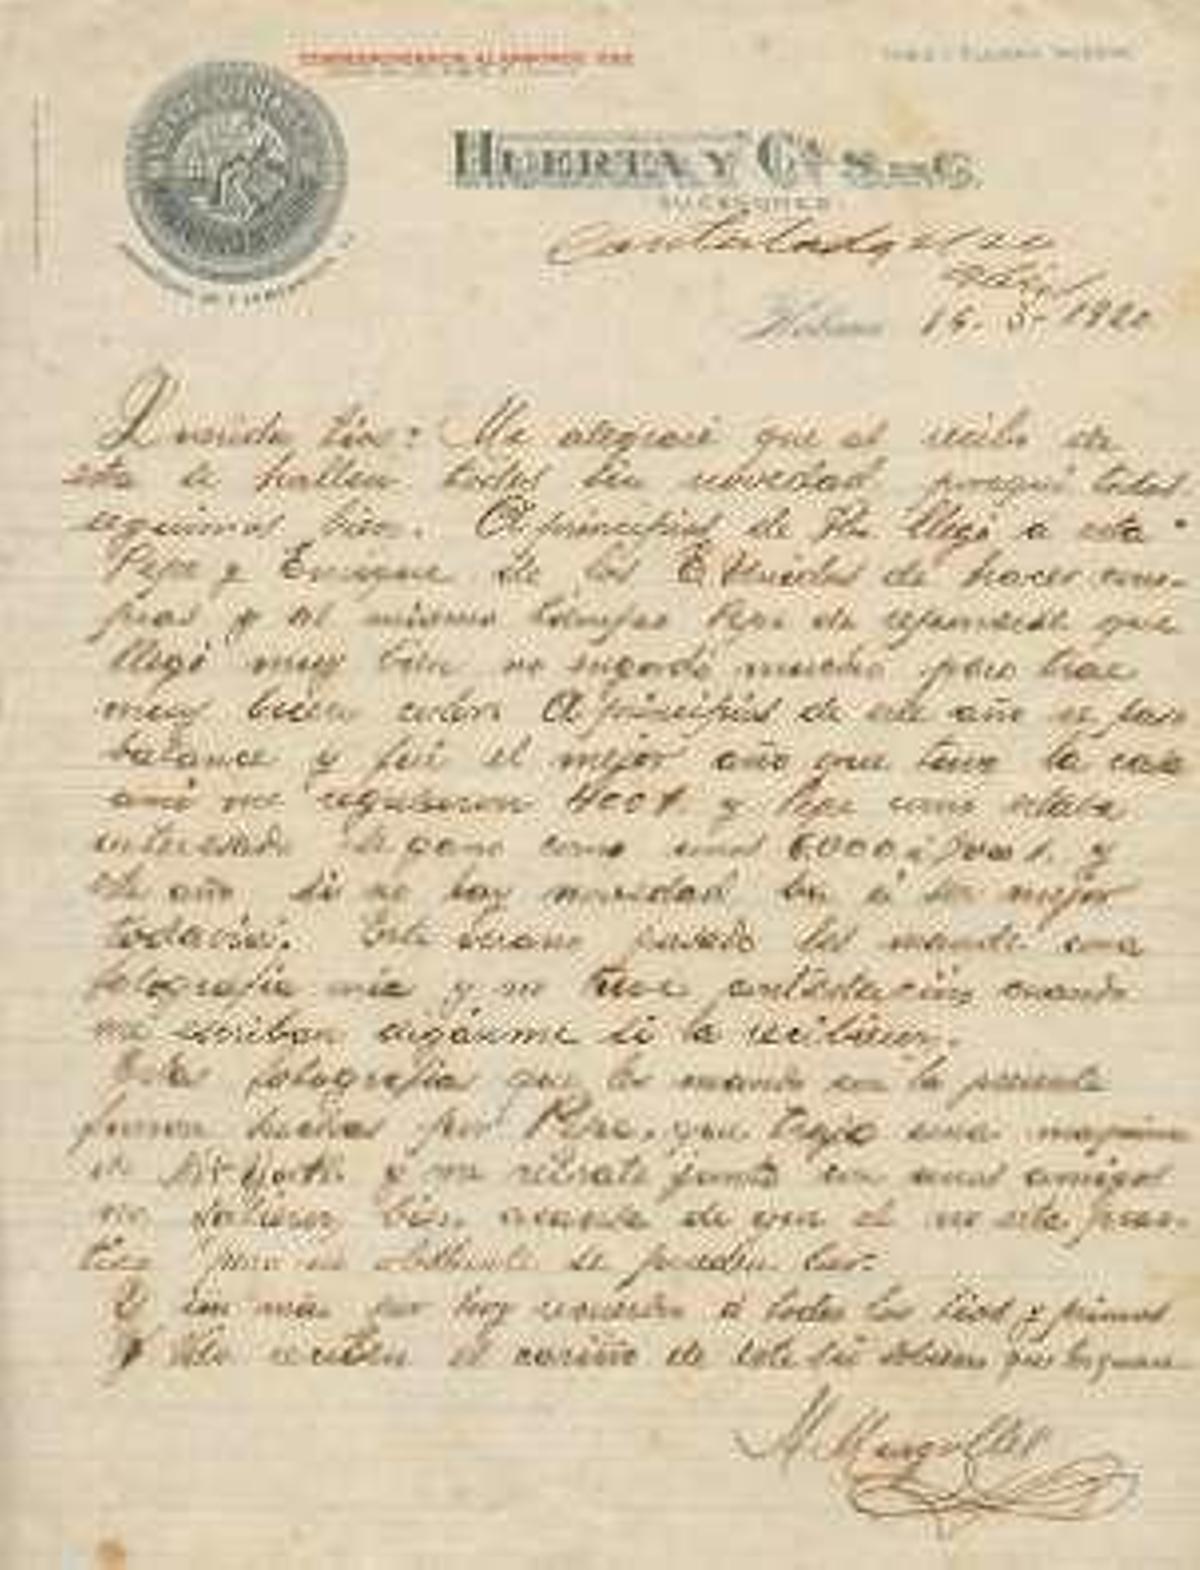 CORRESPONDENCIA AL APARTADO
HUERTA Y Cª S. EN C.
SUCESORES
Contestada
Habana 15. 3- 1920
Querida tios: Me alegraré que al recibo de
esta se hallen todos sin novedad porqui todos
seguimos bien. A principios de llegó a esta
Pepe y Enrique de los E Unidos de hacer com-
pras y al mismo tiempo Pepe de que
llegó muy bien no engordó mucho pero trae
muy buen A principios de este año se paso
balance y fue el mejor año que tuvo la casa
ami me regalaron y Pepe como estaba
interesado le como unos 6.000 y
este año si no hay novedad ba a ser mejor
todavia. Este verano pasado les mande una
fotografia mia y no tuve contestación cuando
me escriban diganme si la recibieron.
Estas fotografias que les mando en la presente
fueron hechas por Pepe, que trajo una maquina
de New York y me retrate junto con unos amigos
no salieron bien acausa de que el no esta prac-
tico pero no obstante se pueden ber.
Y sin mas por hoy recuerdos a todos los tios y primos
y Vds reciban el cariño de este su sobrino que
M.